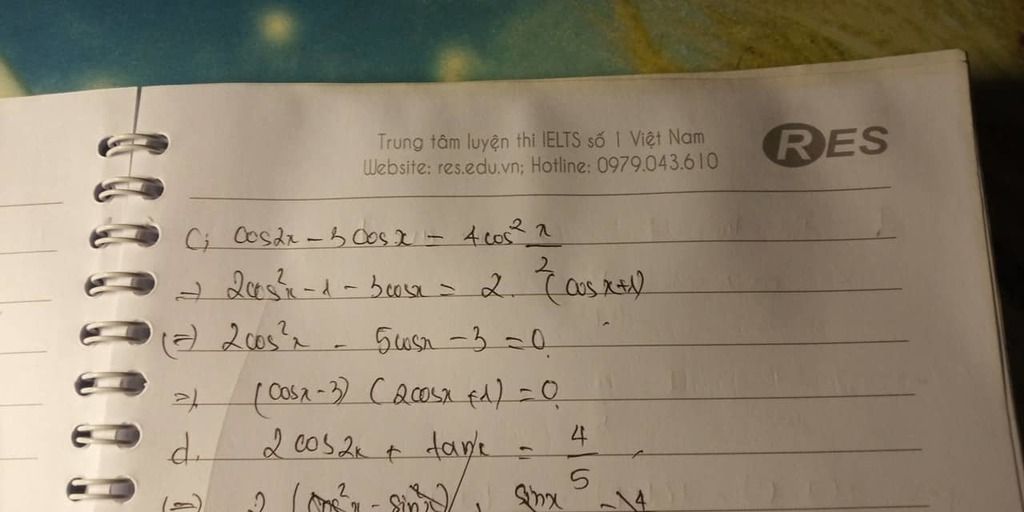 Trung tâm luyện thi IELTS số 1 Việt Nam
RES
Website: res.edu.vn; Hotline: 0979.043.610
c; cos2x - 3cosx = 4cos² x/2
=> 2cos²x - 1 - 3cosx = 2. (cosx+1)
(=) 2cos²x - 5cosx - 3 = 0
=> (cosx-3) (2cosx+1) = 0
d. 2cos2x + tanx = 4/5
(=) 2 (cos²x - sin²x) sinx 4